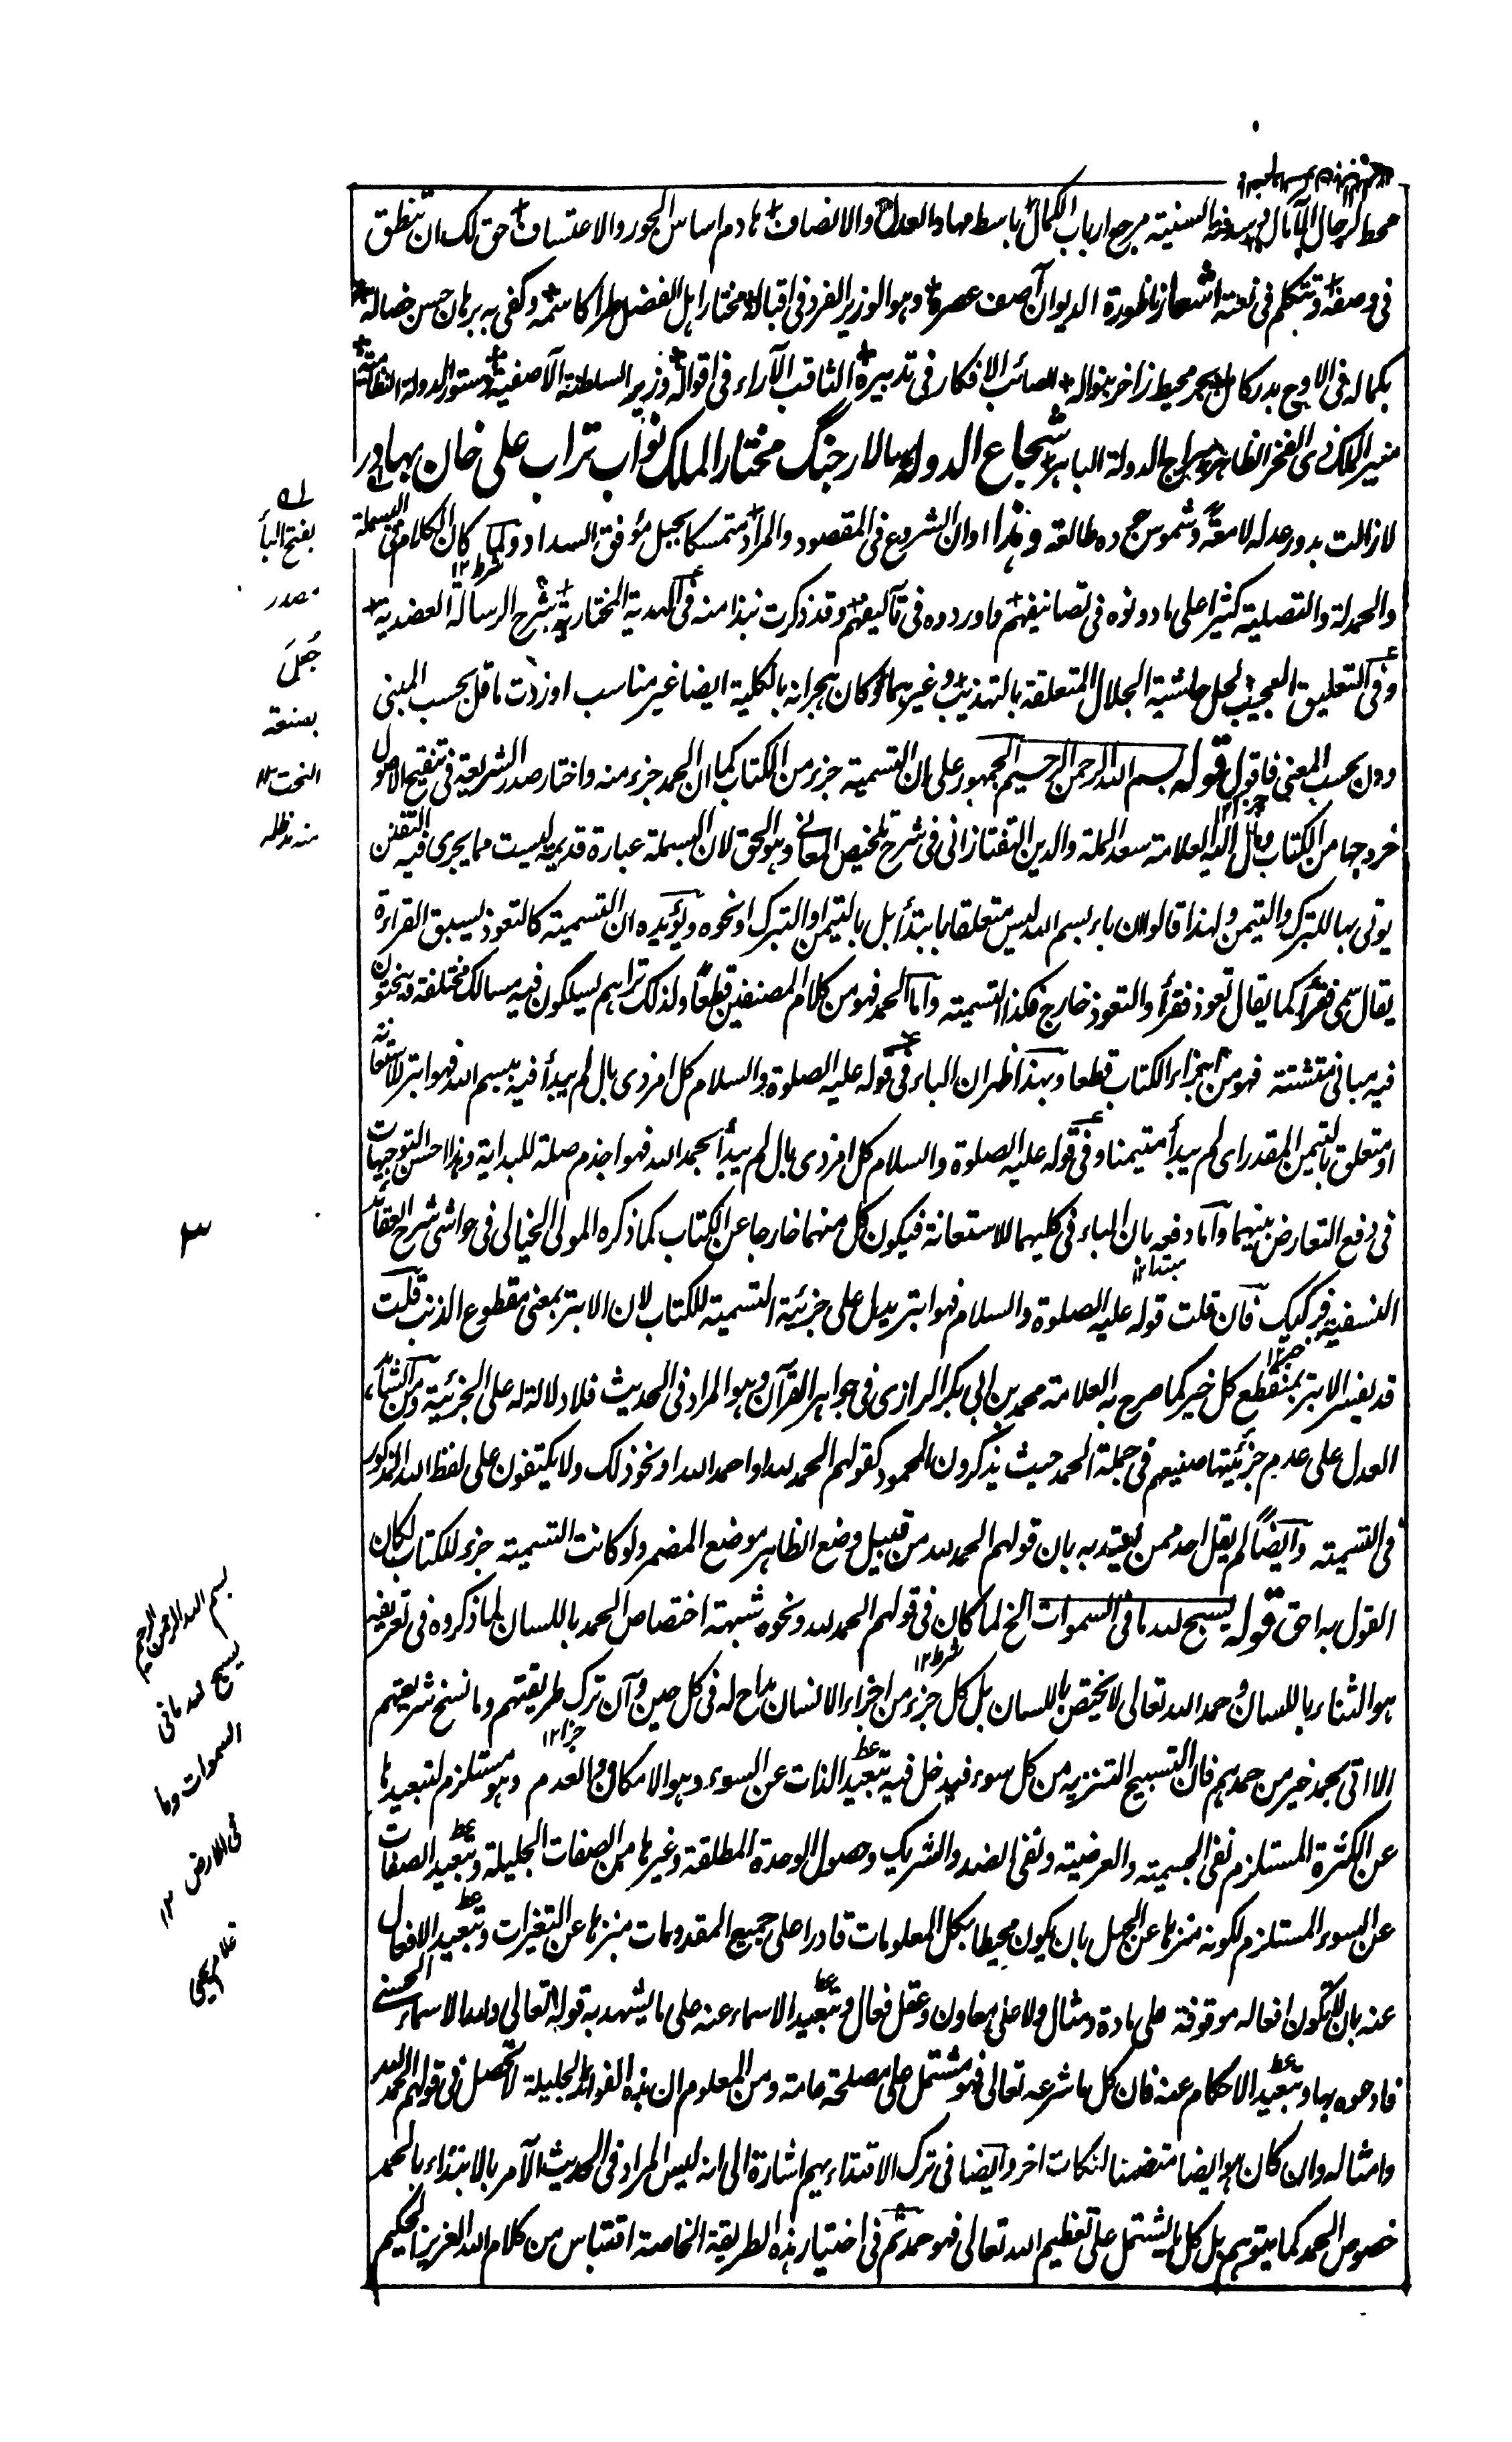 محط لرحال الآمال السنية مرجع ارباب الكمال باسط مهاد العدل والانصاف هادم اساس الجور والاعتساف حق لك ان تنطق
فى وصفه وتتكلم فى نعته اشعار ناظورة الديوان آصف عصره وهو الوزير الفرد فى اقباله مختار اهل الفضل طرا كاسمه وكفى به برهان حسن خصاله
بكماله فى الاوج بدر كامل بحر محيط زاخر بنواله الصائب الافكار فى تدبيره الثاقب الآراء فى اقواله وزير السلطنة الآصفية دستور الدولة النظامية
منير الملك ذى الفخر الظاهر سراج الدولة الباهر شجاع الدوله سالار جنگ مختار الملك نواب تراب على خان بهادر
لا زالت بدور عدله لامعة وشموس مجده طالعة وهذا اوان الشروع فى المقصود والمراد متمسكا بحبل موفق السداد ولما كان الكلام فى البسملة
والحمدلة والتصلية كثيرا على ما دونوه فى تصانيفهم واوردوه فى تآليفهم وقد ذكرت نبذا منه فى الهدية المختارية بشرح الرسالة العضدية
وفى التعليق العجيب لحل حاشية الجلال المتعلقة بالتهذيب وغيرهما وكان هجرانه بالكلية ايضا غير مناسب اوردت ما قل بحسب المبنى
دون بحسب المعنى فاقول قوله بسم الله الرحمن الرحيم الجمهور على ان التسمية جزء من الكتاب كما ان الحمد جزء منه واختار صدر الشريعة فى تنقيح الاصول
خروجها من الكتاب ومال اليه العلامة سعد الملة والدين التفتازانى فى شرح تلخيص المعانے وهو الحق لان البسملة عبارة قديمة ليست مما يجرى فيه التفنن
يوتى بها للتبرك والتيمن ولهذا قالوا ان باء بسم الله ليس متعلقا بابتدأ بل بالتيمن او التبرك او نحوه ويؤيده ان التسمية كالتعوذ يسبق القراءة
يقال سمى فقرأ كما يقال تعوذ فقرأ والتعوذ خارج فكذا التسمية واما الحمد فهو من كلام المصنفين قطعا ولذلك تراهم يسلكون فيه مسالك مختلفة وينحتون
فيه مبانى متشتتة فهو من اجزاء الكتاب قطعا وبهذا ظهر ان الباء فى قوله عليه الصلوة والسلام كل امر ذى بال لم يبدأ فيه ببسم الله فهو ابتر للاستعانة
او متعلق بالتيمن المقدر اى لم يبدأ متيمنا وفى قوله عليه الصلوة والسلام كل امر ذى بال لم يبدأ بحمد الله فهو اجذم صلة للبداية وهذا احسن التوجيهات
فى دفع التعارض بينهما واما دفعه بان الباء فى كليهما للاستعانة فيكون كل منهما خارجا عن الكتاب كما ذكره المولى الخيالى فى حواشى شرح العقائد
النسفية فركيك فان قلت قوله عليه الصلوة والسلام فهو ابتر يدل على جزئية التسمية للكتاب لان الابتر بمعنى مقطوع الذنب قلت
قد يفسر الابتر بمنقطع كل خير كما صرح به العلامة محمد بن ابى بكر الرازى فى جواهر القرآن وهو المراد فى الحديث فلا دلالة له على الجزئية ومن الشاهد
العدل على عدم جزئيتها صنيعهم فى جملة الحمد حيث يذكرون المحمود كقولهم الحمد لله او احمد الله او نحو ذلك ولا يكتفون على لفظ الله المذكور
فى التسمية وايضا لم يقل احد ممن يعتد به بان قولهم الحمد لله من قبيل وضع الظاهر موضع المضمر ولو كانت التسمية جزء للكتاب لكان
القول به احق قوله يسبح لله ما فى السموات الخ لما كان فى قولهم الحمد لله ونحوه شبهة اختصاص الحمد باللسان لما ذكروه فى تعريفه
هو الثناء باللسان وحمد الله تعالى لا يختص باللسان بل كل جزء من اجزاء الانسان مداح له فى كل حين وآن ترك طريقتهم وما نسخ شريعتهم
الا اتى بحمد خير من حمدهم فان التسبيح التنزيه من كل سوء فيدخل فيه تبعيد الذات عن السوء وهو الامكان والعدم وهو مستلزم لتبعيدها
عن الكثرة المستلزم نفى الجسمية والعرضية ونفى الضد والشريك وحصول الوحدة المطلقة وغيرها من الصفات الجليلة وتبعيد الصفات
عن السوء المستلزم لكونه منزها عن الجهل بان يكون محيطا بكل المعلومات قادرا على جميع المقدورات منزها عن التغيرات وتبعيد الافعال
عنه بان لا تكون افعاله موقوفة على مادة ومثال ولا على معاون وعقل فعال وتبعيد الاسماء عنه على ما يشهد به قوله تعالى ولله الاسماء الحسنى
فادعوه بها وتبعيد الاحكام عنه فان كل ما شرعه تعالى فهو مشتمل على مصلحة عامة ومن المعلوم ان هذه الفوائد الجليلة لا تحصل فى قولهم الحمد لله
وامثاله وان كان هو ايضا متضمنا لنكات اخر وايضا فى ترك الاقتداء بهم اشارة الى انه ليس المراد فى الحديث الآمر بالابتداء بالحمد
خصوص الحمد كما يتوهم بل كل ما يشتمل على تعظيم الله تعالى فهو حمد ثم فى اختيار هذه الطريقة الخاصة اقتباس من كلام الله العزيز الحكيم
له
بفتح الباء
مصدر
جَعَلَ
بصنعة
النحت ١٢
منه مد ظله
٣
بسم الله الرحمن الرحيم
يسبح لله ما فى
السموات وما
فى الارض ١٢
غلام يحيى